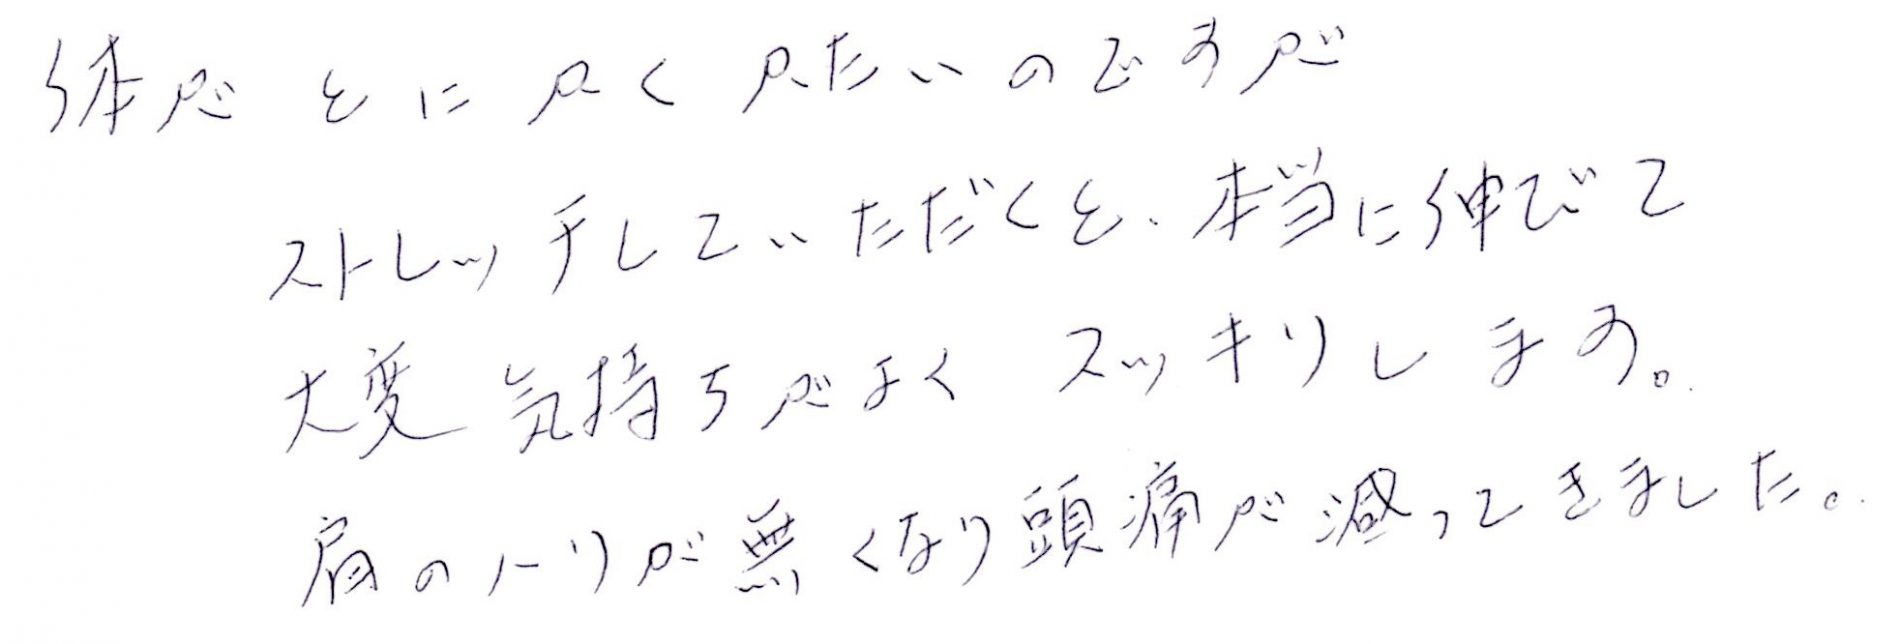 体がとにかくかたいのですが
ストレッチしていただくと、本当に伸びて
大変気持ちがよくスッキリします。
肩のハリが無くなり頭痛が減ってきました。